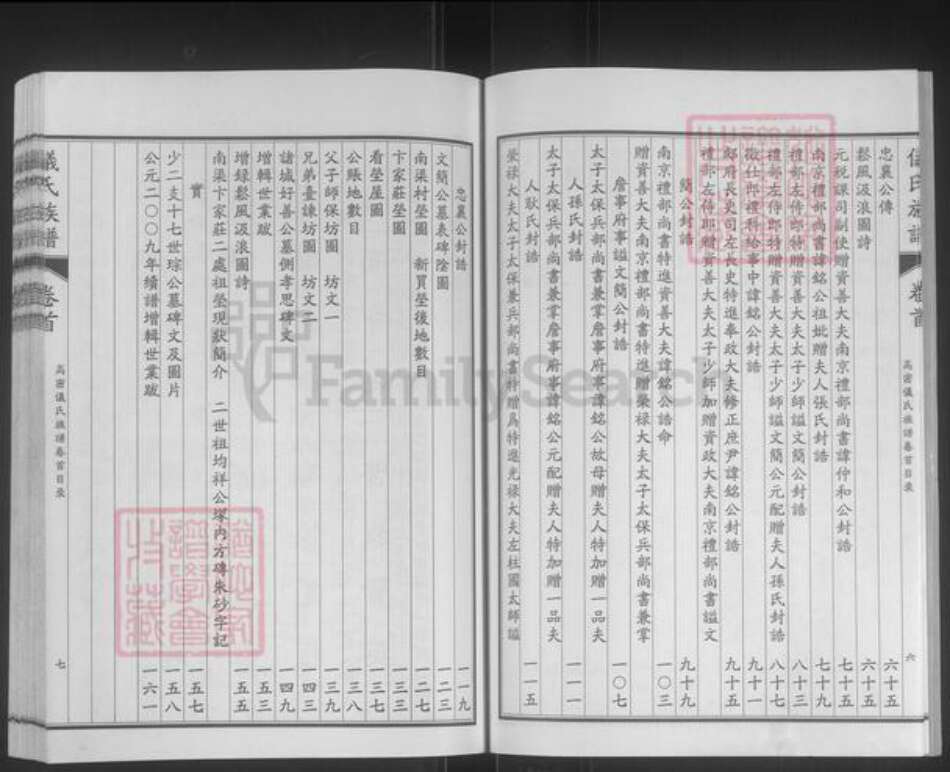 忠襄公傳 六十五
鬆風汲浪圖詩 六十五
元税課司副使贈資善大夫南京禮部尚書諱仲和公封誥 七十五
南京禮部尚書諱銘公祖妣贈夫人張氏封誥 七十九
禮部左侍郎特贈資善大夫太子少師謚文簡公封誥 八十三
禮部左侍郎特贈資善大夫太子少師謚文簡公元配贈夫人孫氏封誥 八十七
徵仕郎禮科給事中諱銘公封誥 九十一
郕府長史司左長史特進奉政大夫修正庶尹諱銘公封誥 九十五
禮部左侍郎贈資善大夫太子少師加贈資政大夫南京禮部尚書謚文
簡公封誥 九十九
南京禮部尚書特進資善大夫諱銘公誥命 一〇三
贈資善大夫南京禮部尚書特進贈榮禄大夫太子太保兵部尚書兼掌
詹事府事謚文簡公封誥 一〇七
太子太保兵部尚書兼掌詹事府事諱銘公故母贈夫人特加贈一品夫
人孫氏封誥 一一一
太子太保兵部尚書兼掌詹事府事諱銘公元配贈夫人特加贈一品夫
人耿氏封誥 一一五
榮禄大夫太子太保兼兵部尚書特贈爲特進光禄大夫左柱國太師謚
高密儀氏族譜卷首目录
六
忠襄公封誥 一一九
文簡公墓表碑陰圖 一二三
南渠村塋圖 新買塋後地數目 一二七
卞家莊塋圖 一三三
看塋屋圖 一三七
公賬地數目 一三八
父子師保坊圖 坊文一 一三九
兄弟臺諫坊圖 坊文二 一四三
諸城好善公墓側孝思碑文 一四九
增輯世業跋 一五三
增録鬆風汲浪圖詩 一五五
南渠卞家莊二處祖塋現狀簡介 二世祖均祥公塚内方磚朱砂字記
實 一五七
少二支十七世琮公墓碑文及圖片 一五八
公元二〇〇九年續譜增輯世業跋 一六一
儀氏族譜 卷首
高密儀氏族譜卷首目录
七
FamilySearch